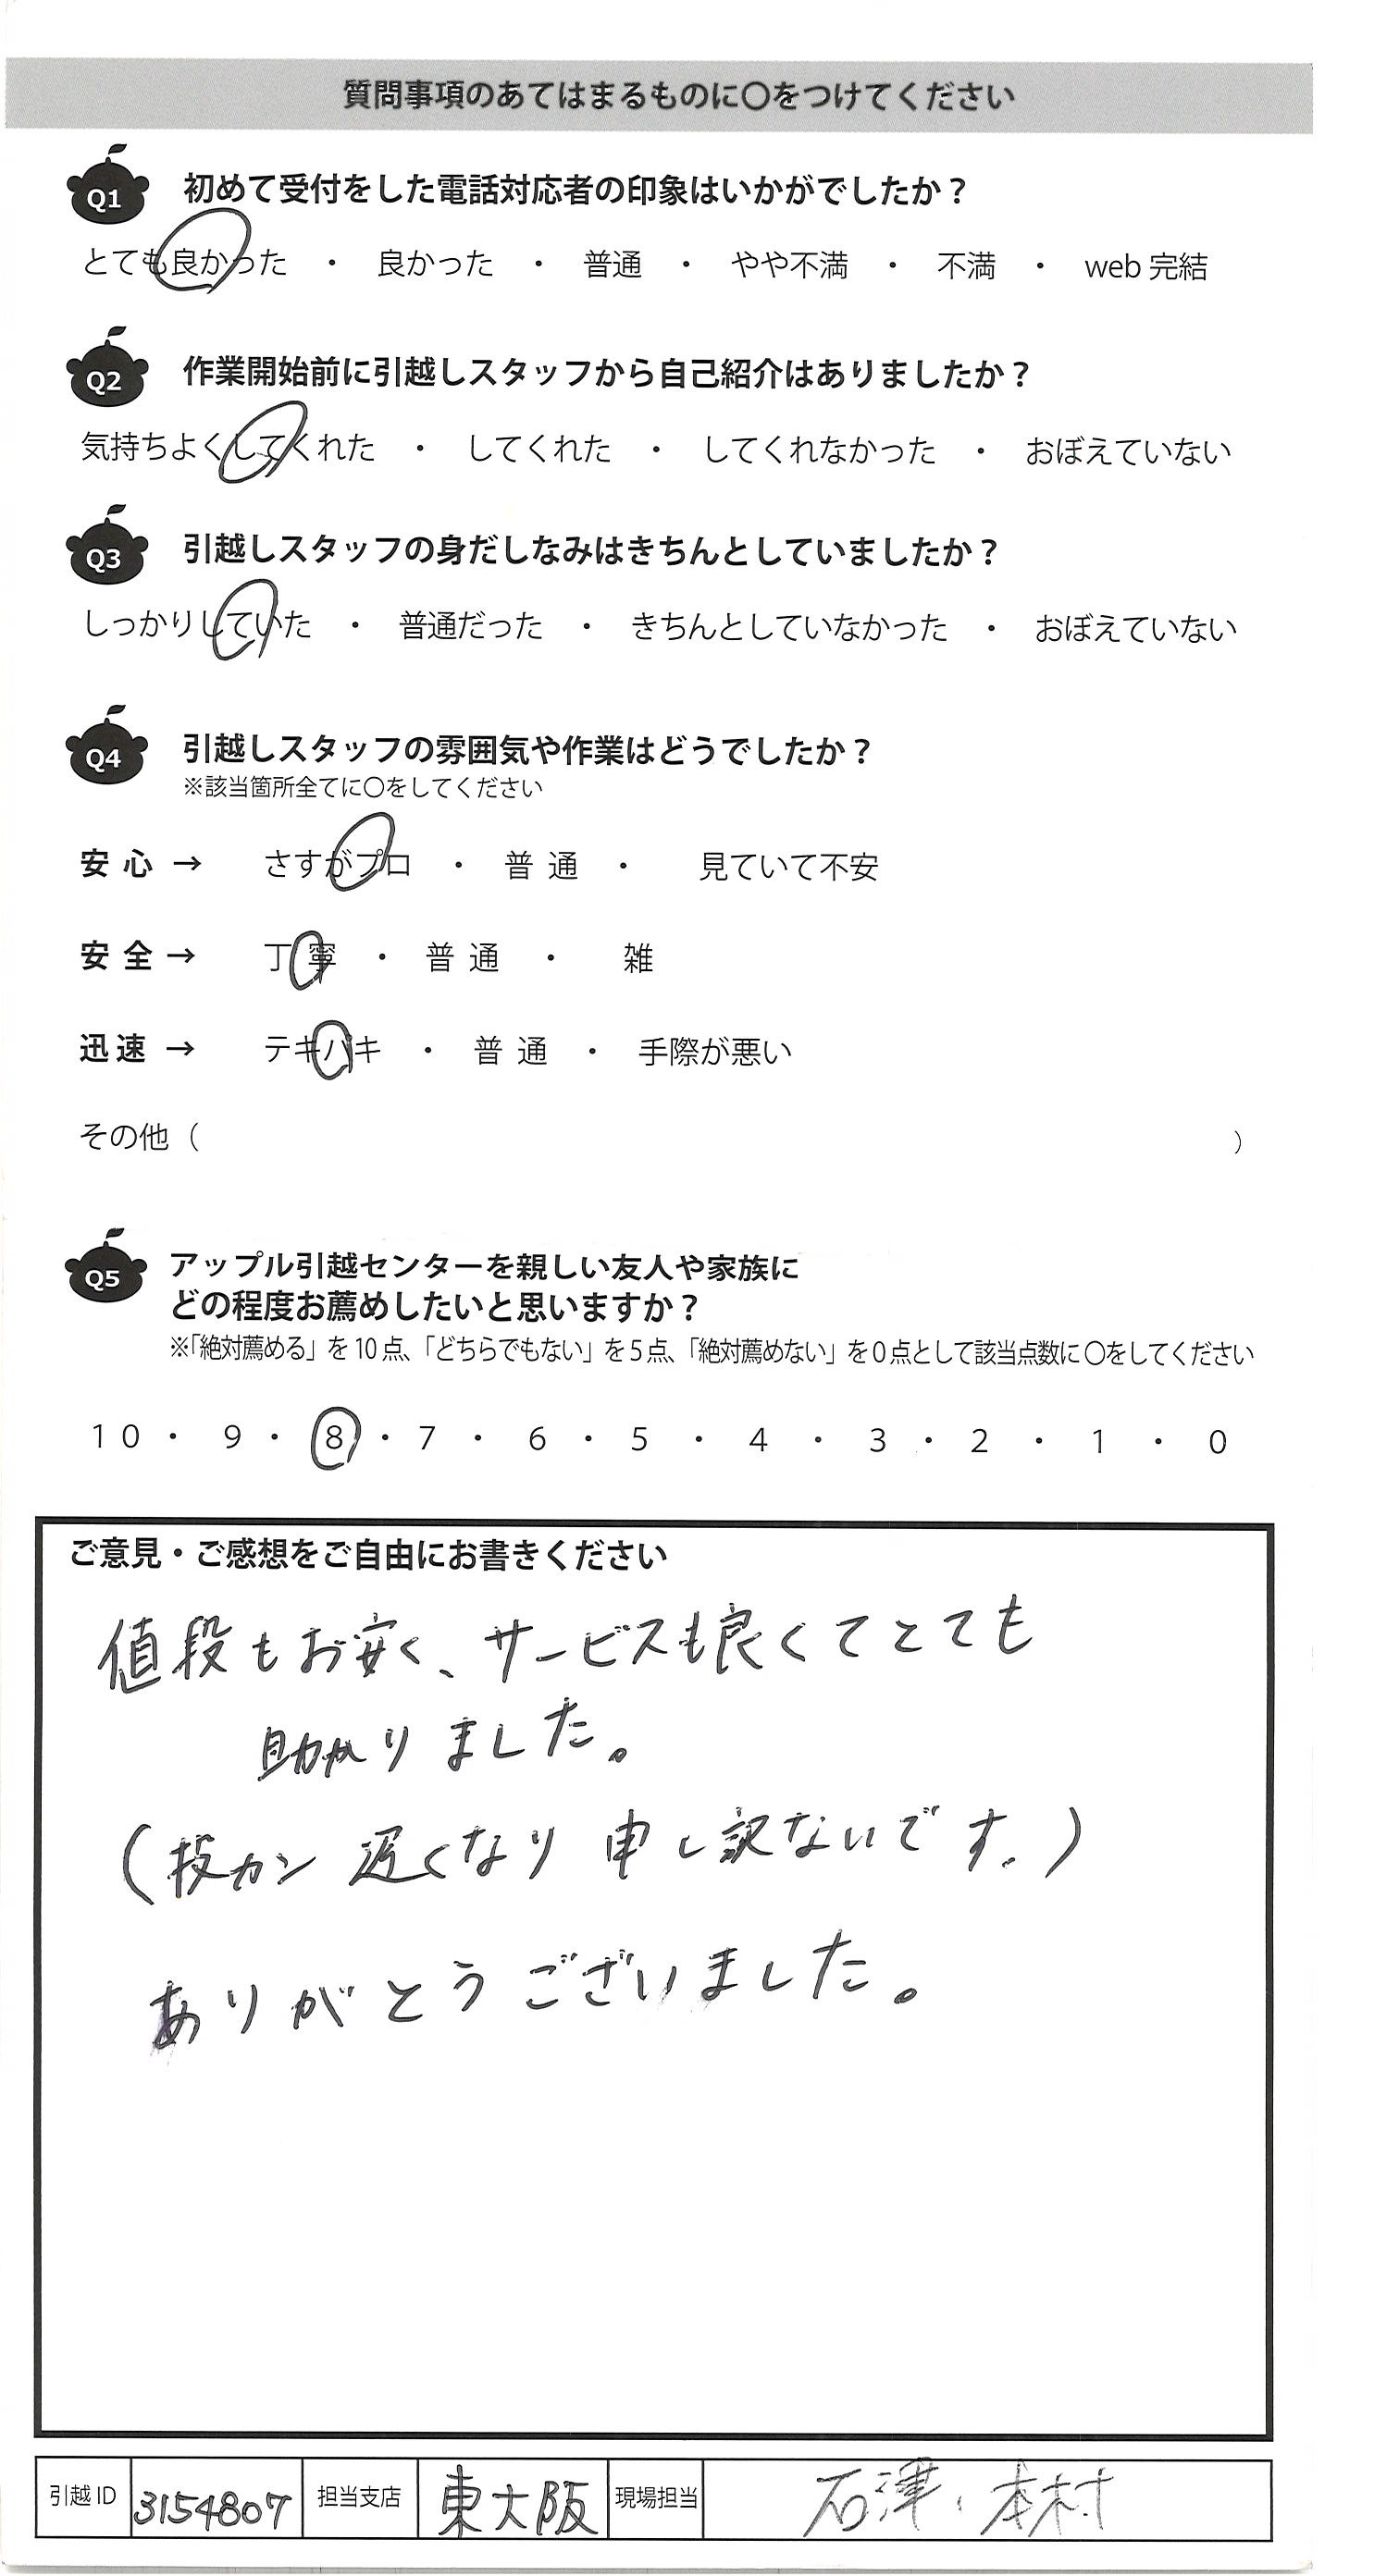 質問事項のあてはまるものに〇をつけてください
Q1 初めて受付をした電話対応者の印象はいかがでしたか？
とても良かった ・ 良かった ・ 普通 ・ やや不満 ・ 不満 ・ web 完結
Q2 作業開始前に引越しスタッフから自己紹介はありましたか？
気持ちよくしてくれた ・ してくれた ・ してくれなかった ・ おぼえていない
Q3 引越しスタッフの身だしなみはきちんとしていましたか？
しっかりしていた ・ 普通だった ・ きちんとしていなかった ・ おぼえていない
Q4 引越しスタッフの雰囲気や作業はどうでしたか？
※該当箇所全てに〇をしてください
安心 → さすがプロ ・ 普通 ・ 見ていて不安
安全 → 丁寧 ・ 普通 ・ 雑
迅速 → テキパキ ・ 普通 ・ 手際が悪い
その他（ ）
Q5 アップル引越センターを親しい友人や家族に
どの程度お薦めしたいと思いますか？
※「絶対薦める」を10点、「どちらでもない」を5点、「絶対薦めない」を0点として該当点数に〇をしてください
10 ・ 9 ・ 8 ・ 7 ・ 6 ・ 5 ・ 4 ・ 3 ・ 2 ・ 1 ・ 0
ご意見・ご感想をご自由にお書きください
値段もお安く、サービスも良くてとても
助かりました。
（投カン 遅くなり 申し訳ないです。）
ありがとうございました。
引越ID 3154807 担当支店 東大阪 現場担当 石津、本村